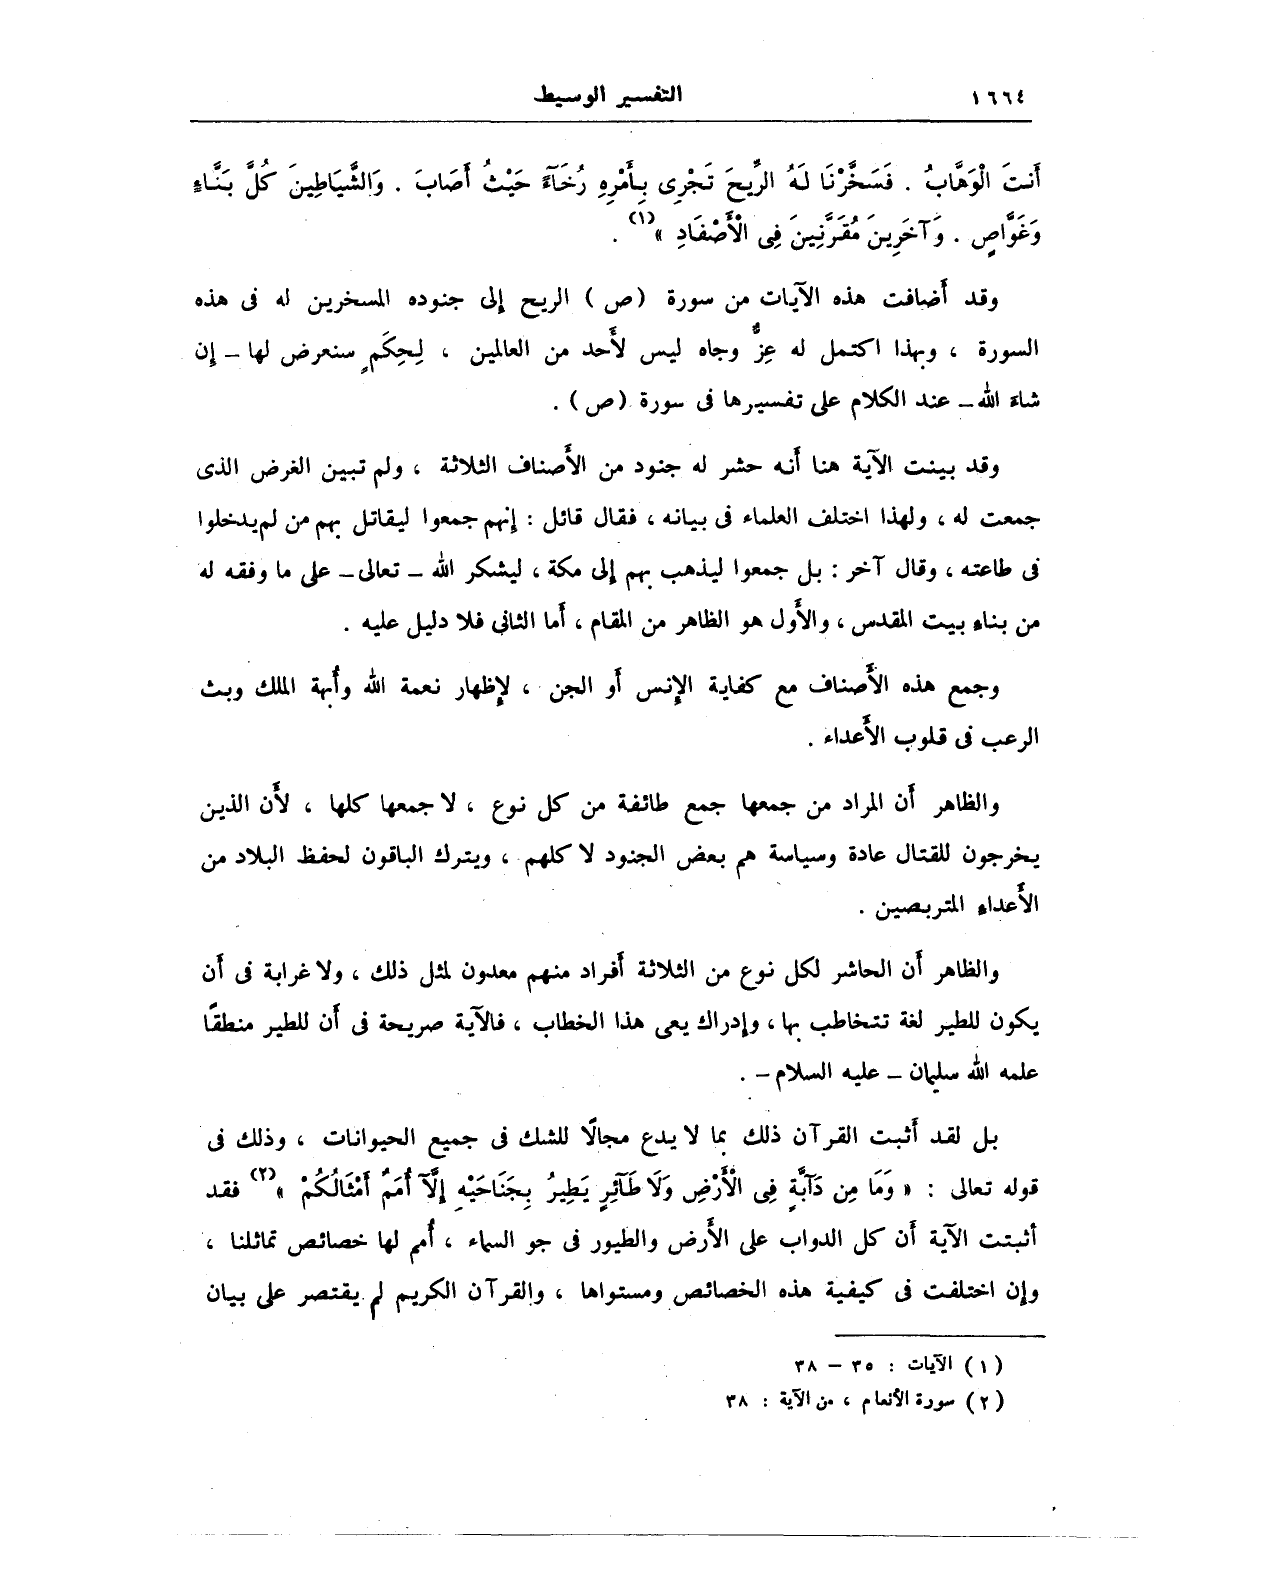 ١٦٦٤ التفسير الوسيط
أَنتَ الْوَهَّابُ . فَسَخَّرْنَا لَهُ الرِّيحَ تَجْرِى بِأَمْرِهِ رُخَآءً حَيْثُ أَصَابَ . وَالشَّيَاطِينَ كُلَّ بَنَّاءٍ
وَغَوَّاصٍ . وَآخَرِينَ مُقَرَّنِينَ فِى الْأَصْفَادِ » (١) .
وقد أَضافت هذه الآيات من سورة (ص) الريح إلى جنوده المسخرين له فى هذه
السورة ، وبهذا اكتمل له عِزٌّ وجاه ليس لأَحد من العالمين ، لِحِكَمٍ سنعرض لها ـ إن
شاءَ الله ـ عند الكلام على تفسيرها فى سورة (ص) .
وقد بينت الآية هنا أَنه حشر له جنود من الأَصناف الثلاثة ، ولم تبين الغرض الذى
جمعت له ، ولهذا اختلف العلماء فى بيانه ، فقال قائل : إنهم جمعوا ليقاتل بهم من لم يدخلوا
فى طاعته ، وقال آخر : بل جمعوا ليذهب بهم إلى مكة ، ليشكر الله ـ تعالى ـ على ما وفقه له
من بناءِ بيت المقدس ، والأَول هو الظاهر من المقام ، أَما الثانى فلا دليل عليه .
وجمع هذه الأَصناف مع كفاية الإنس أَو الجن ، لإظهار نعمة الله وأُبهة الملك وبث
الرعب فى قلوب الأَعداء .
والظاهر أَن المراد من جمعها جمع طائفة من كل نوع ، لا جمعها كلها ، لأَن الذين
يخرجون للقتال عادة وسياسة هم بعض الجنود لا كلهم ، ويترك الباقون لحفظ البلاد من
الأَعداءِ المتربصين .
والظاهر أَن الحاشر لكل نوع من الثلاثة أَفراد منهم معدون لمثل ذلك ، ولا غرابة فى أَن
يكون للطير لغة تتخاطب بها ، وإدراك يعى هذا الخطاب ، فالآية صريحة فى أَن للطير منطقًا
علمه الله سليمان ـ عليه السلام ـ .
بل لقد أَثبت القرآن ذلك بما لا يدع مجالًا للشك فى جميع الحيوانات ، وذلك فى
قوله تعالى : « وَمَا مِن دَآبَّةٍ فِى الْأَرْضِ وَلَا طَآئِرٍ يَطِيرُ بِجَنَاحَيْهِ إِلَّآ أُمَمٌ أَمْثَالُكُمْ » (٢) فقد
أثبتت الآية أَن كل الدواب على الأَرض والطيور فى جو السماء ، أُمم لها خصائص تماثلنا ،
وإن اختلفت فى كيفية هذه الخصائص ومستواها ، والقرآن الكريم لم يقتصر على بيان
(١) الآيات : ٣٥ – ٣٨
(٢) سورة الأنعام ، من الآية : ٣٨